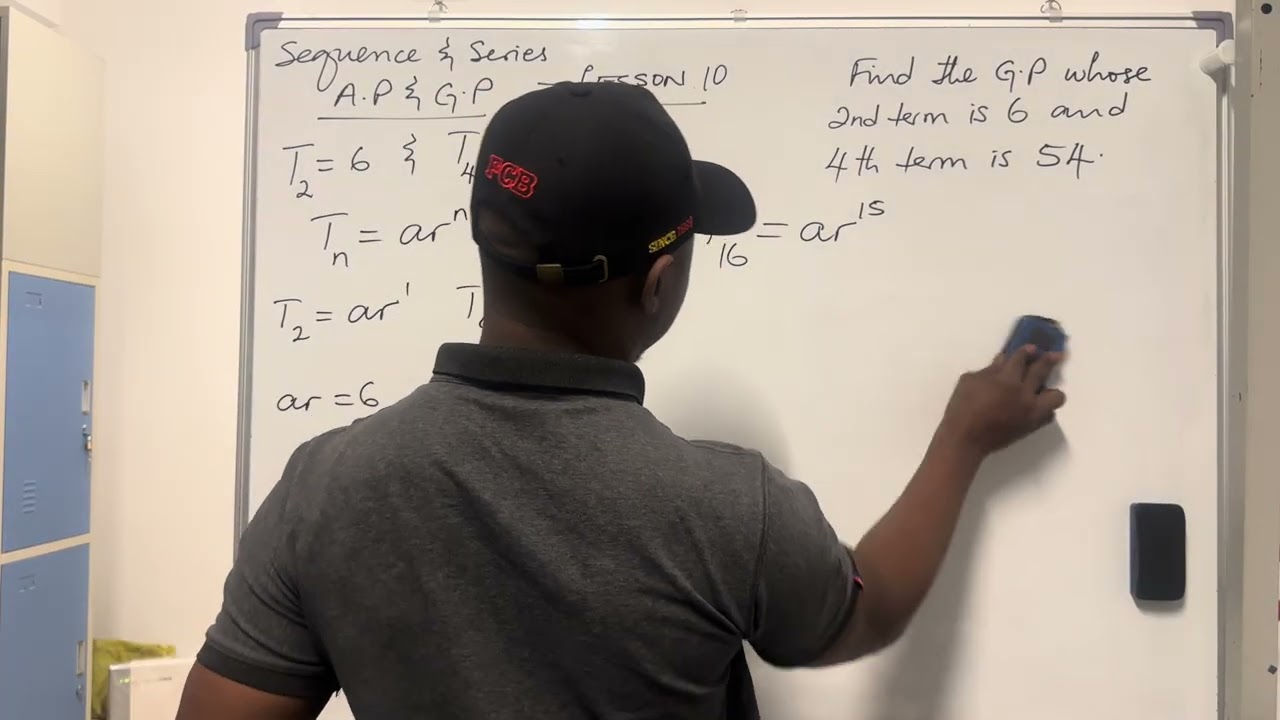 Sequence & Series
A.P & G.P - LESSON 10
T₂ = 6 & T₄
Tₙ = arⁿ
T₂ = ar¹ T
ar = 6
Find the G.P whose
2nd term is 6 and
4th term is 54.
₁₆ = ar¹⁵
FCB
SINCE